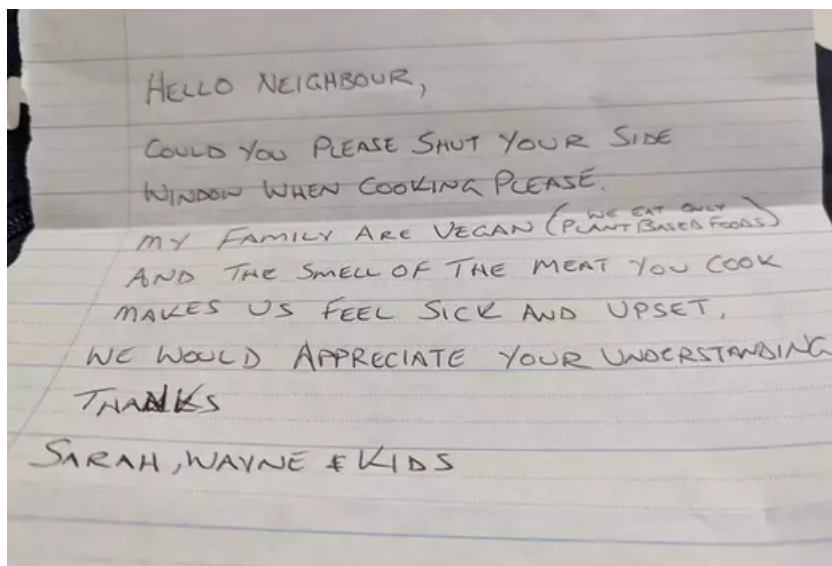 HELLO NEIGHBOUR,
COULD YOU PLEASE SHUT YOUR SIDE
WINDOW WHEN COOKING PLEASE.
MY FAMILY ARE VEGAN (WE EAT ONLY PLANT BASED FOODS)
AND THE SMELL OF THE MEAT YOU COOK
MAKES US FEEL SICK AND UPSET.
WE WOULD APPRECIATE YOUR UNDERSTANDING
THANKS
SARAH, WAYNE & KIDS